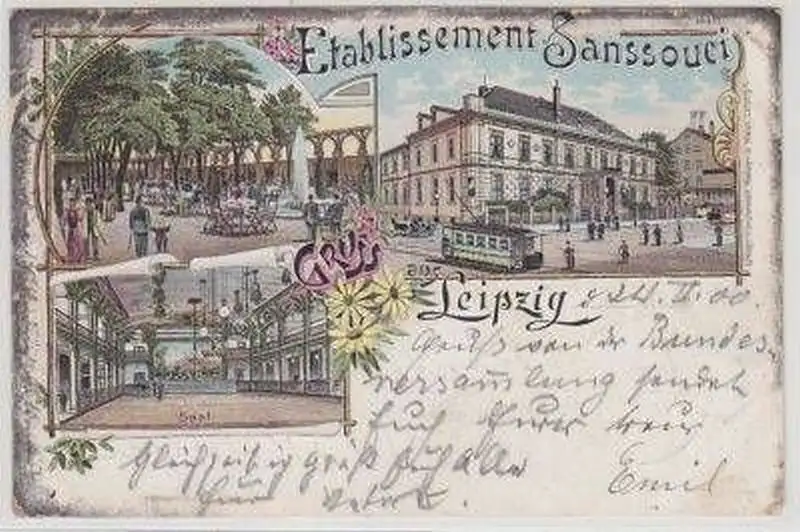 Etablissement Sanssouci
Gruss
aus
Leipzig
II. 00.
Gruß von der Bundes-
versammlung sendet
Euch Euer treuer
Emil
Gleichzeitig grüßt Euch Alle
Saal